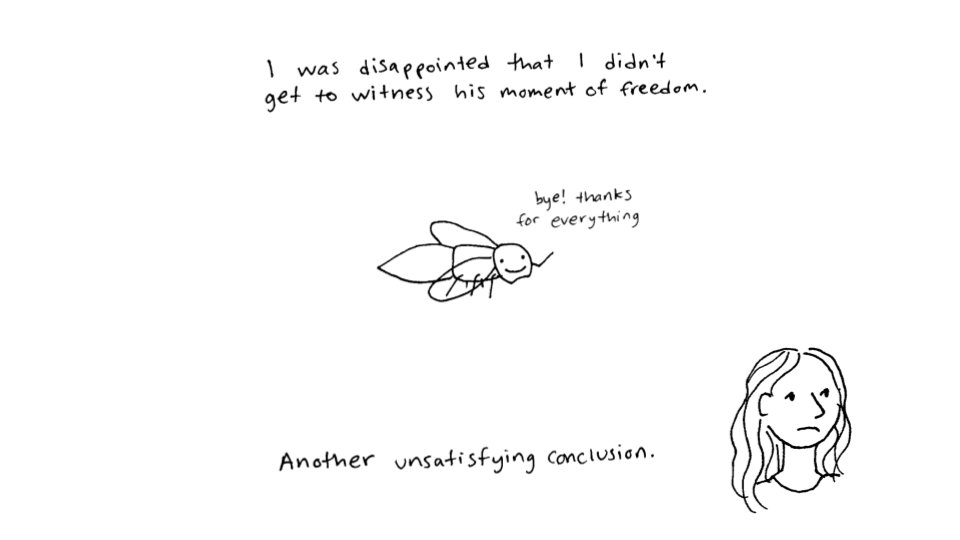 I was disappointed that I didn't
get to witness his moment of freedom.
bye! thanks
for everything
Another unsatisfying conclusion.